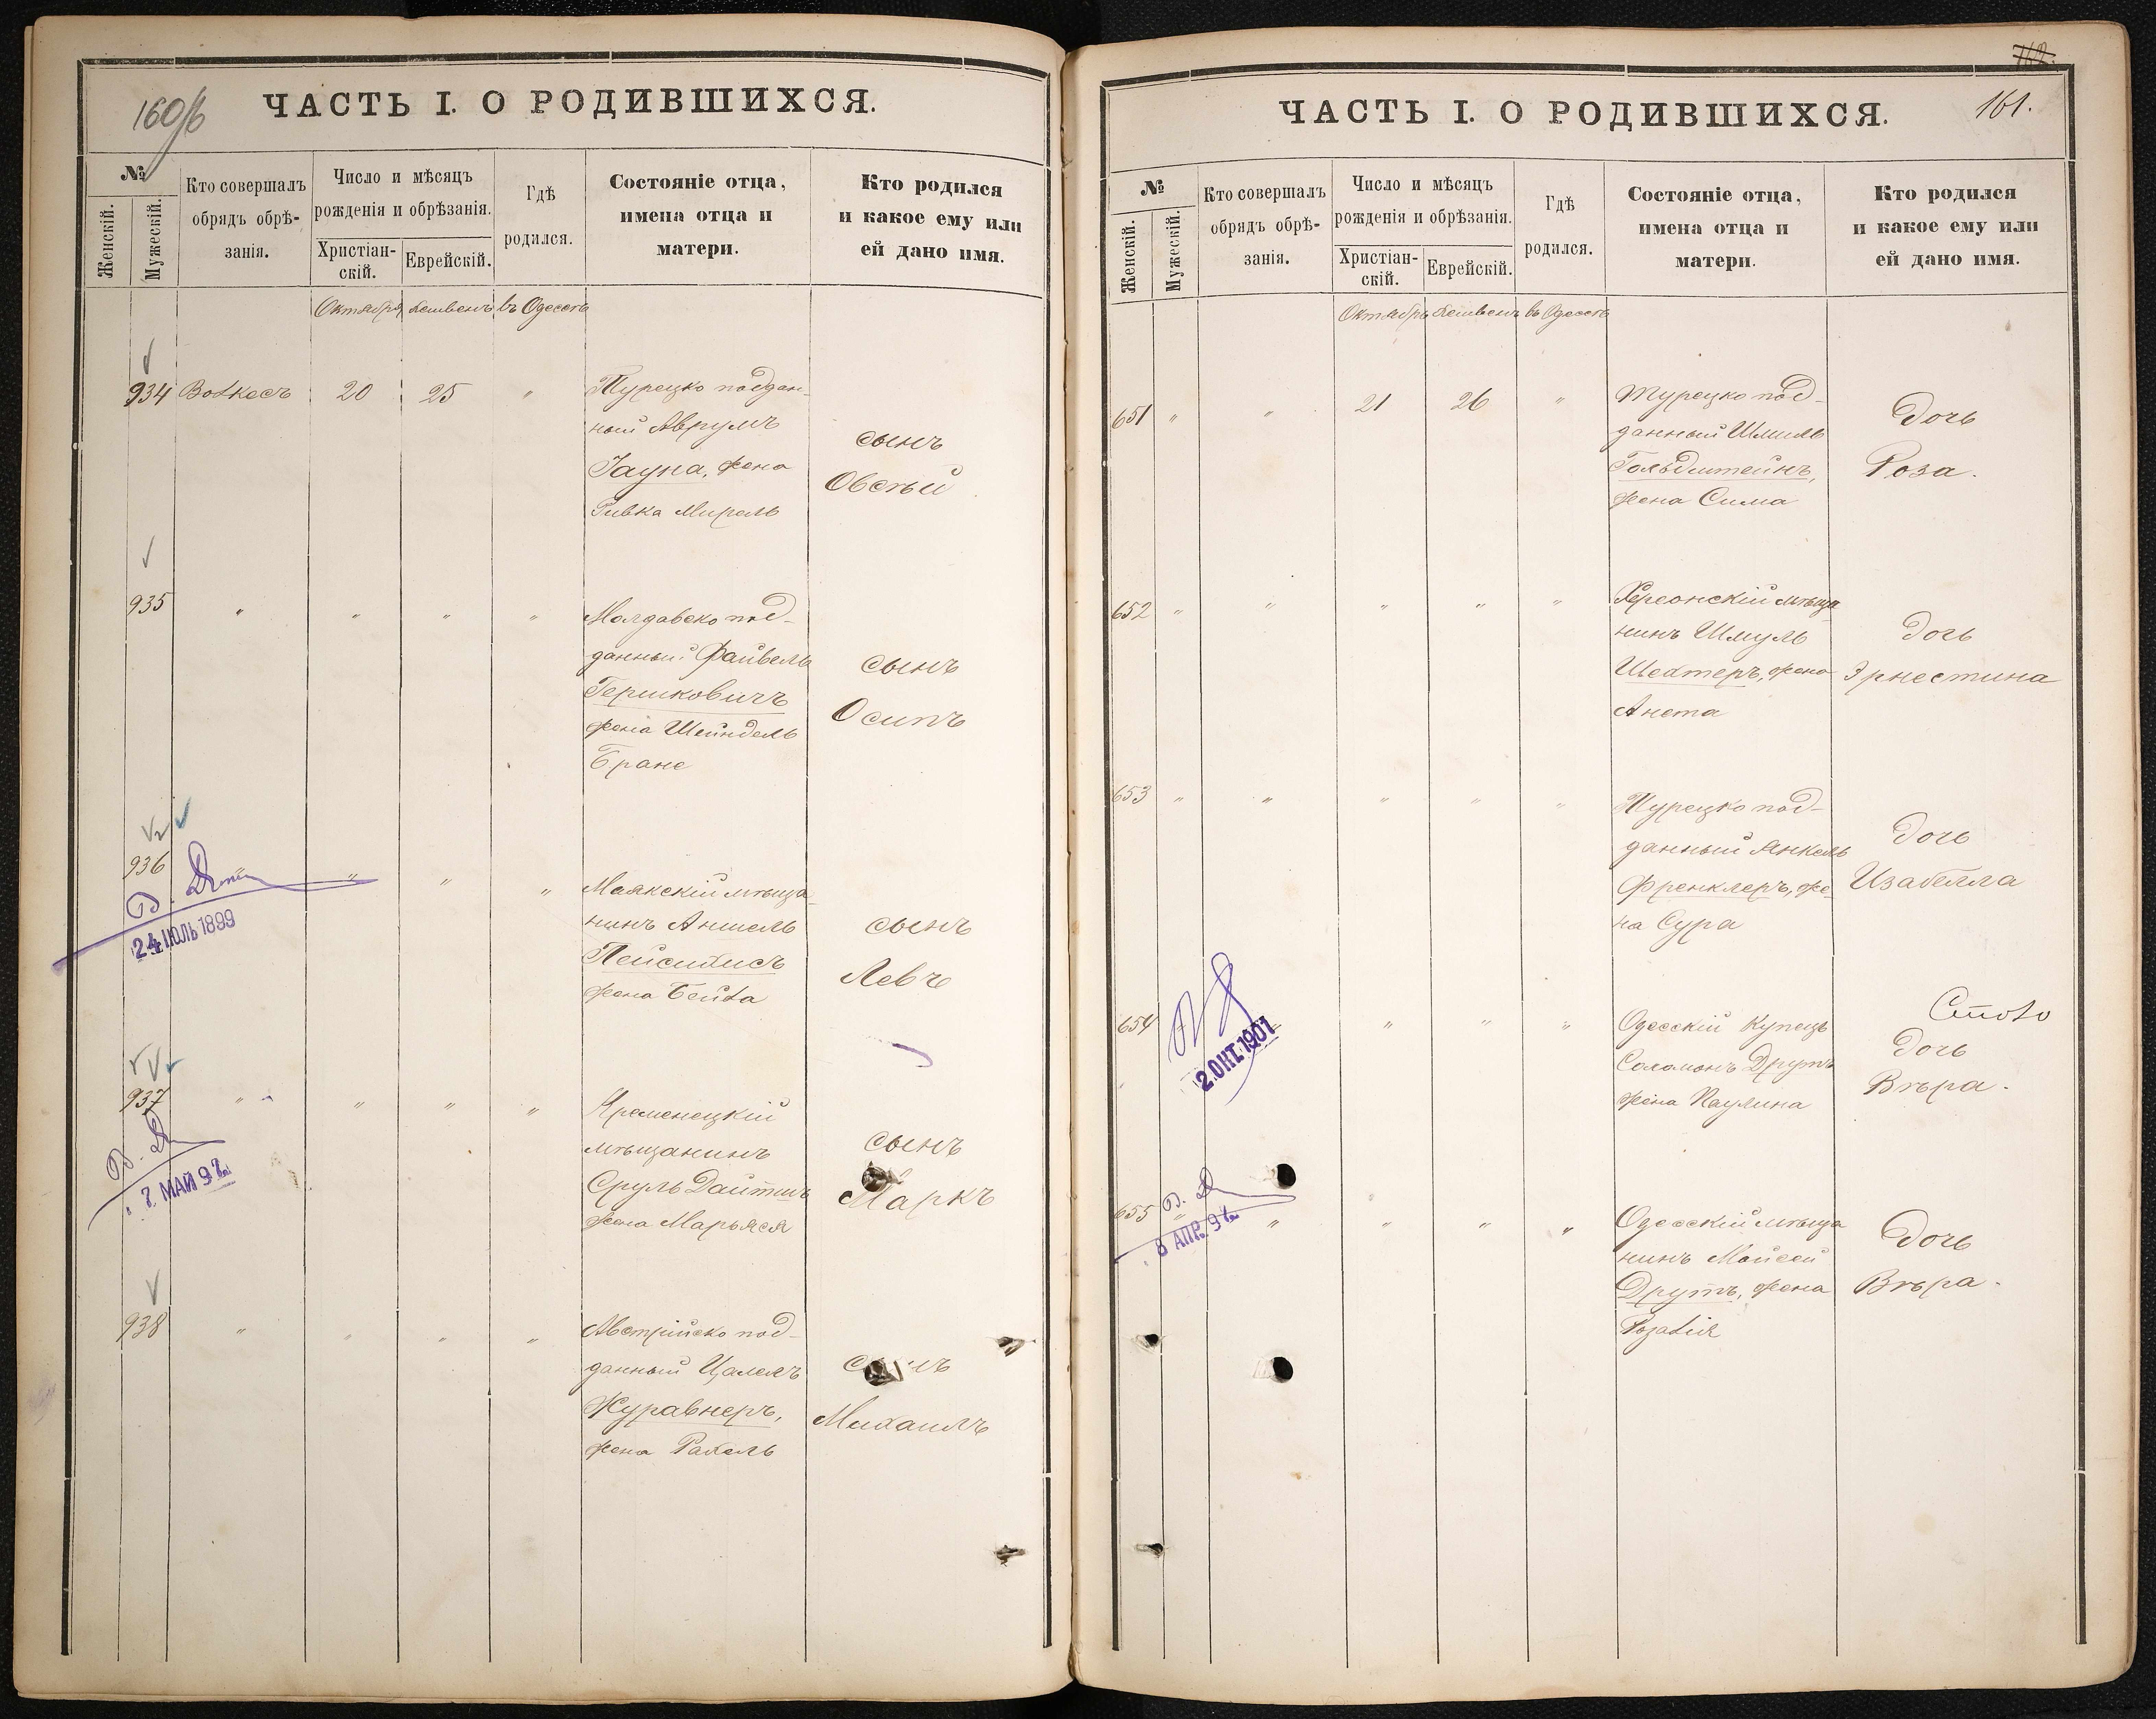 160об
ЧАСТЬ I. О РОДИВШИХСЯ.
№
Женскій.
Мужескій.
Кто совершалъ
обрядъ обрѣ-
занія.
Число и мѣсяцъ
рожденія и обрѣзанія.
Христіан-
скій.
Еврейскій.
Гдѣ
родился.
Состояніе отца,
имена отца и
матери.
Кто родился
и какое ему или
ей дано имя.
Октября Хешвенъ въ Одессѣ
934 20 25 "
Турецко поддан-
ный Аврумъ
Гауна, жена
Ривка Мирель
сынъ
Овсѣй
935 " " " "
Молдавско под-
данный Файвель
Гершковичъ
жена Шейндель
Бране
сынъ
Осипъ
936 " " "
24 ІЮЛЬ 1899
Маякскій мѣща-
нинъ Аншель
Пейсихисъ
жена Бейла
сынъ
Левъ
937 " " " "
МАЙ 97
Кременецкій
мѣщанинъ
Сруль Дайтшъ
жена Марьяся
сынъ
Маркъ
938 " " " "
Австрійско под-
данный Цалелъ
Журавнеръ,
жена Рахель
сынъ
Михаилъ
162.
ЧАСТЬ I. О РОДИВШИХСЯ.
161.
№
Женскій.
Мужескій.
Кто совершалъ
обрядъ обрѣ-
занія.
Число и мѣсяцъ
рожденія и обрѣзанія.
Христіан-
скій.
Еврейскій.
Гдѣ
родился.
Состояніе отца,
имена отца и
матери.
Кто родился
и какое ему или
ей дано имя.
Октябрь Хешвенъ въ Одессѣ
651 " " 21 26 "
Турецко под-
данный Шмиль
Гольдштейнъ,
жена Сима
Дочь
Роза.
652 " " " " "
Херсонскій мѣща
нинъ Шмуль
Шехтеръ, жена
Анета
Дочь
Эрнестина
653 " " " " "
Турецко под-
данный Янкель
Френклеръ, же-
на Сура
Дочь
Изабелла
654 " " " "
2.ОКТ.1901
Одесскій Купецъ
Соломонъ Друтъ
жена Паулина
Дочь
Вѣра.
655 " " " " "
8 АПР. 97
Одесскій мѣща
нинъ Мойсей
Друтъ, жена
Розалія
Дочь
Вѣра.